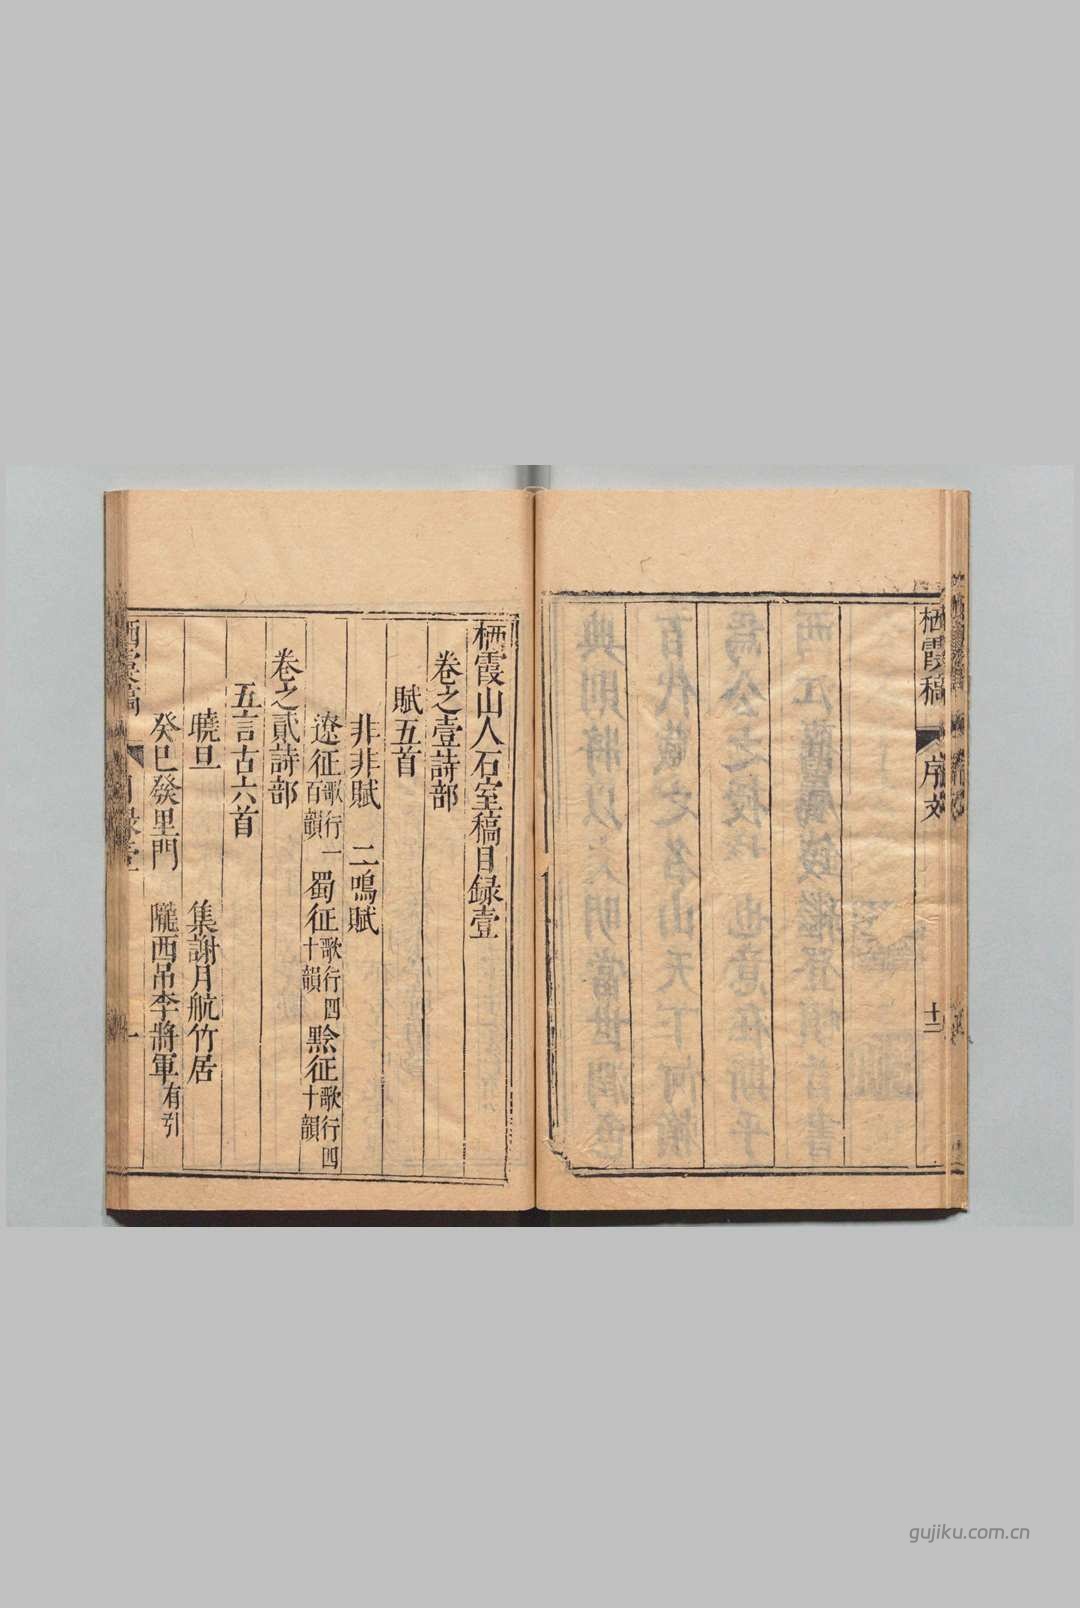 栖霞稿
序文
十二
栖霞山人石室稿目録壹
卷之壹詩部
賦五首
非非賦 二鳴賦
遼征歌行一百韻 蜀征歌行四十韻 黔征歌行四十韻
卷之貳詩部
五言古六首
曉旦 集謝月航竹居
癸巳發里門 隴西吊李將軍有引
栖霞稿
目録壹
一
gujiku.com.cn